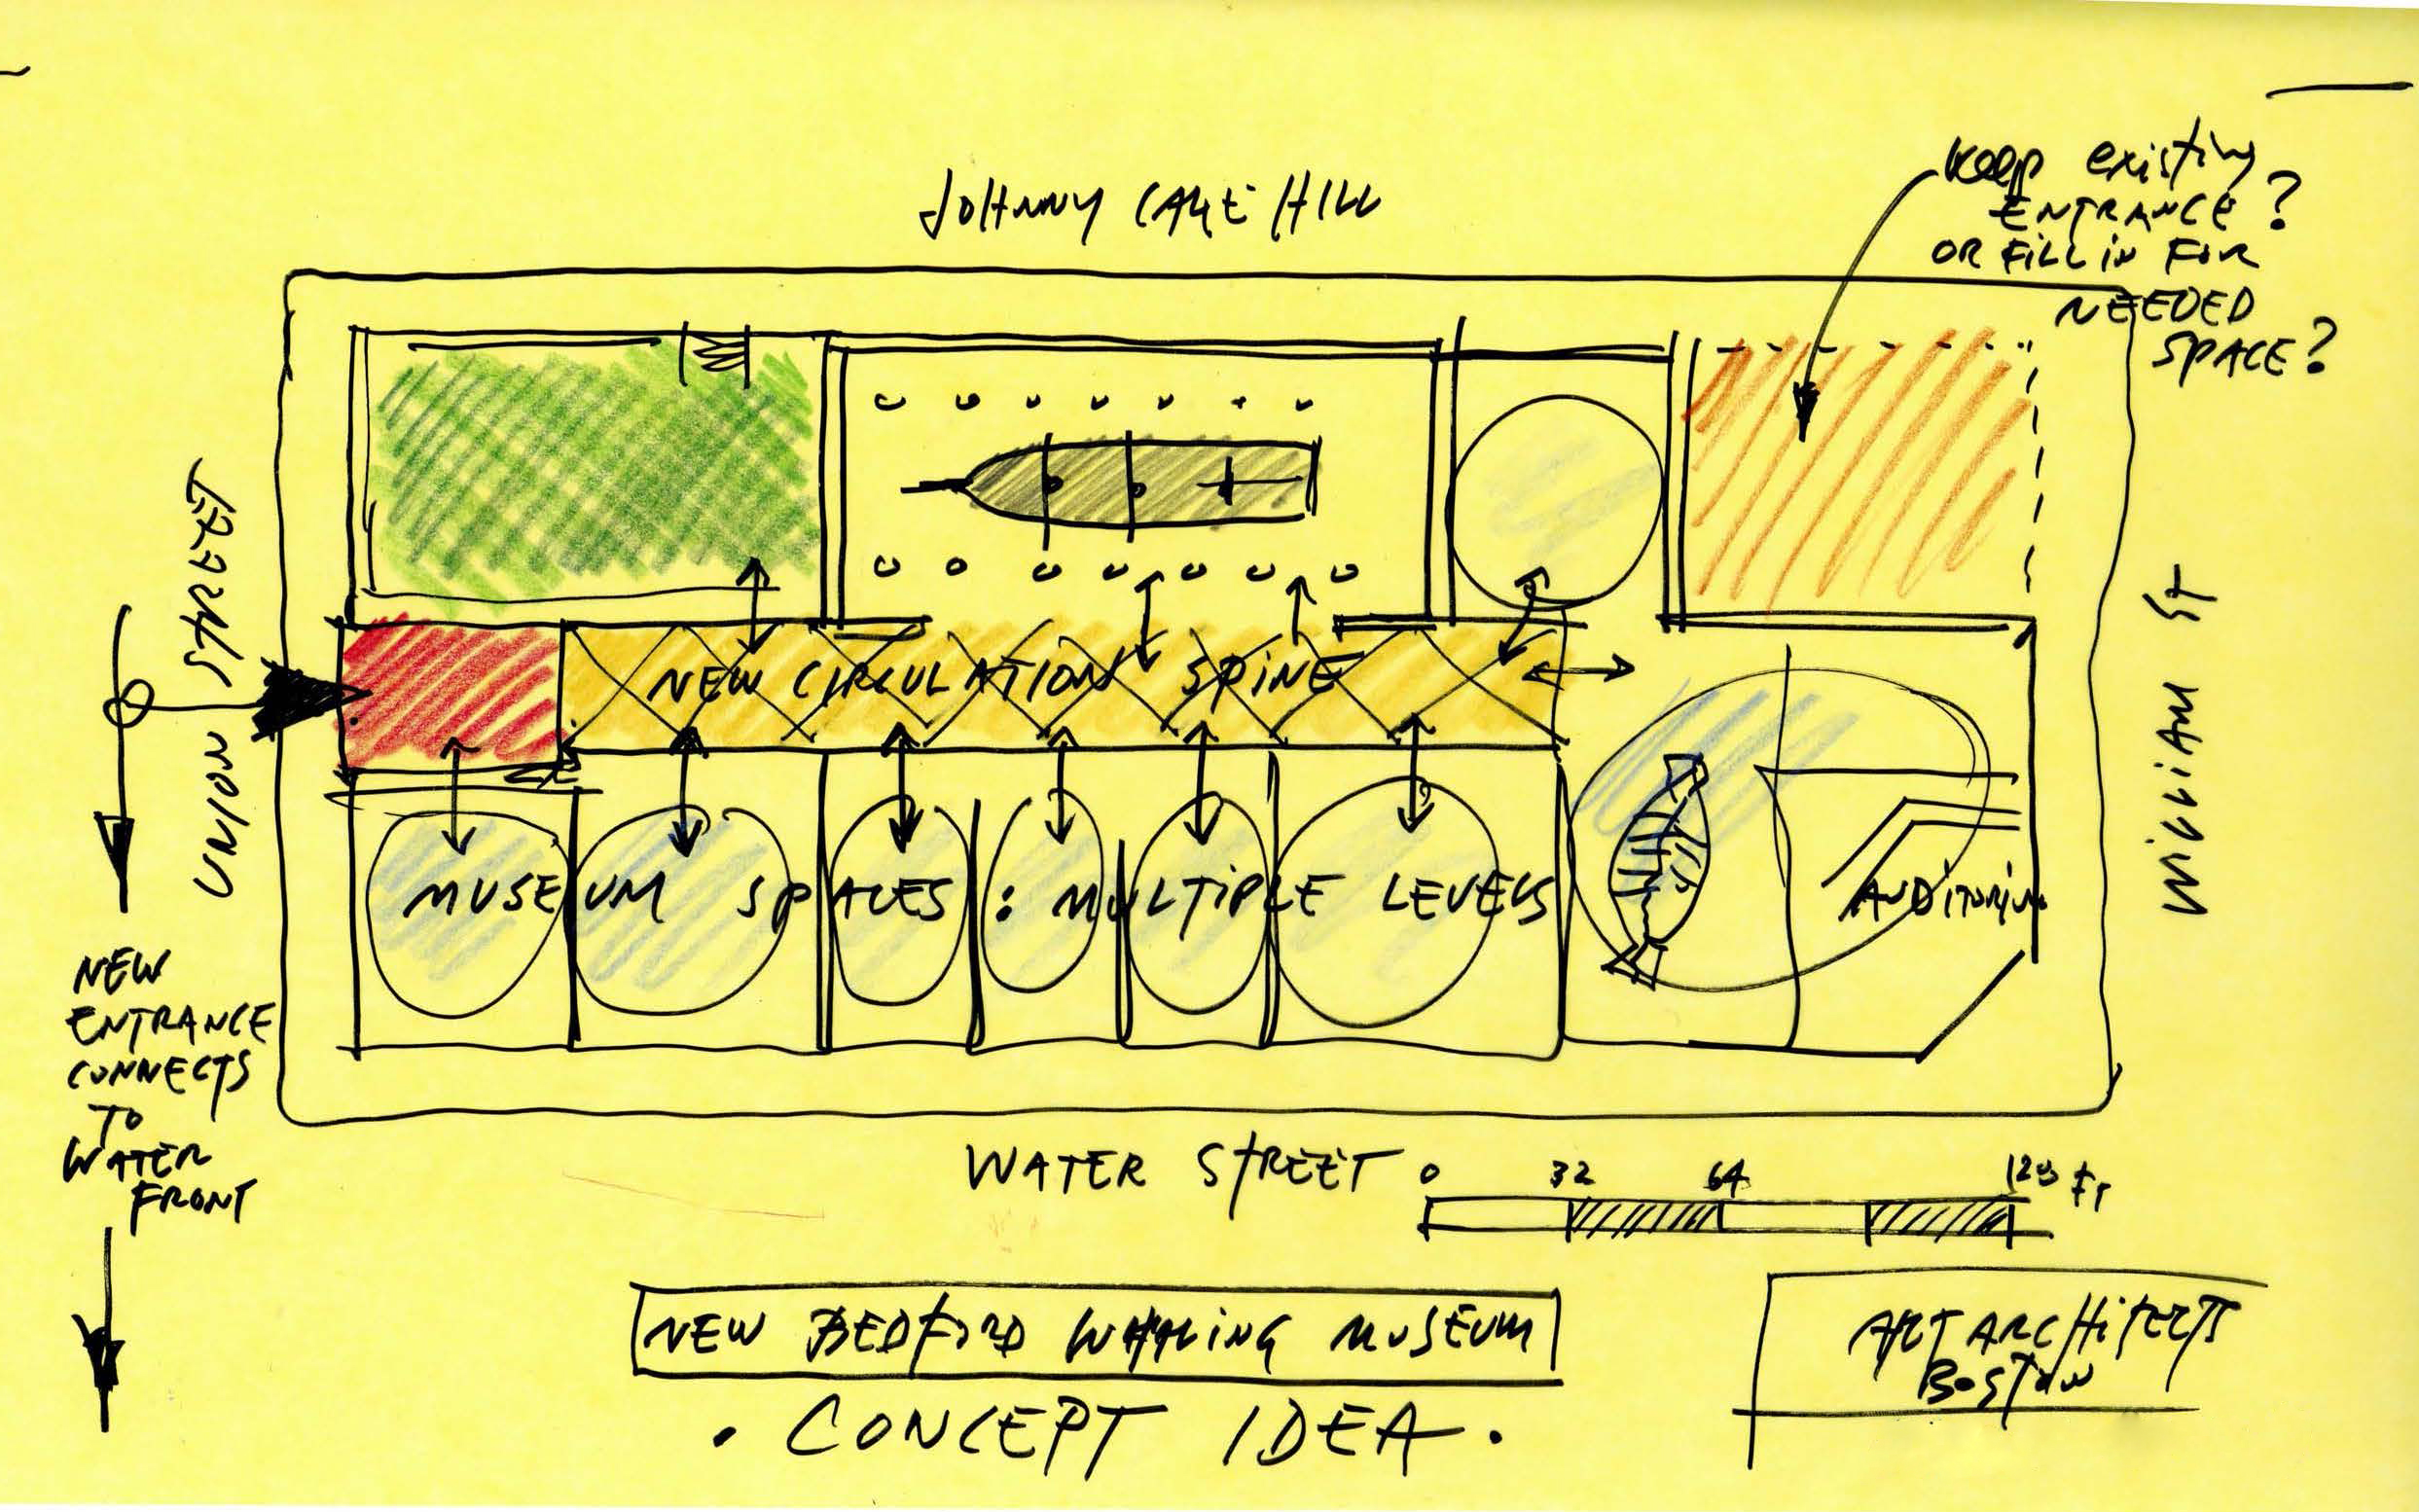 JOHNNY CAKE HILL
Keep existing
ENTRANCE?
OR FILL IN FOR
NEEDED
SPACE?
UNION STREET
WILLIAM ST
NEW CIRCULATION SPINE
MUSEUM SPACES : MULTIPLE LEVELS
AUDITORIUM
NEW
ENTRANCE
CONNECTS
TO
WATER
FRONT
WATER STREET
0 32 64 128 FT
NEW BEDFORD WHALING MUSEUM
. CONCEPT IDEA .
ART ARCHITECTS
BOSTON